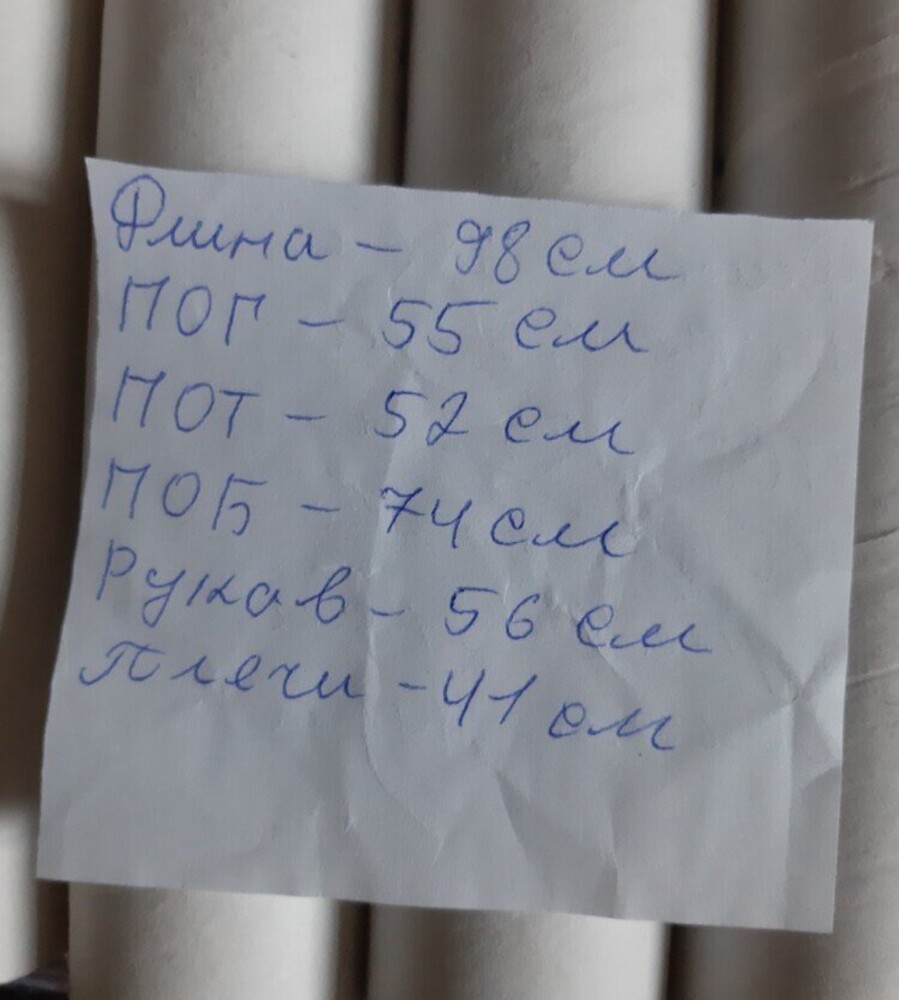 Длина - 98 см
ПОГ - 55 см
ПОТ - 52 см
ПОБ - 74 см
Рукав - 56 см
Плечи - 41 см